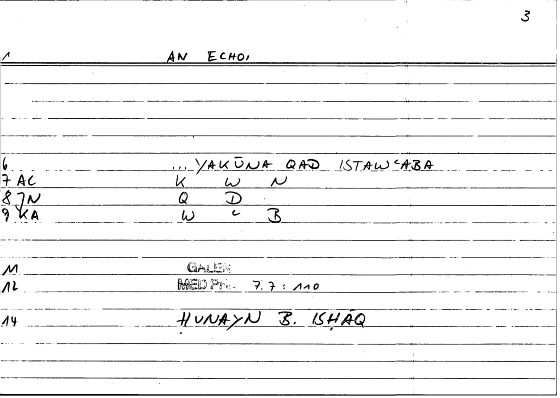 3
1 AN ECHOI
6 ... YAKŪNA QAD ISTAWʿABA
7 AC K W N
8 JN Q D
9 KA W ʿ B
11 GALEN
12 MED PH. 7.7 : 110
14 ḤUNAYN B. ISḤĀQ